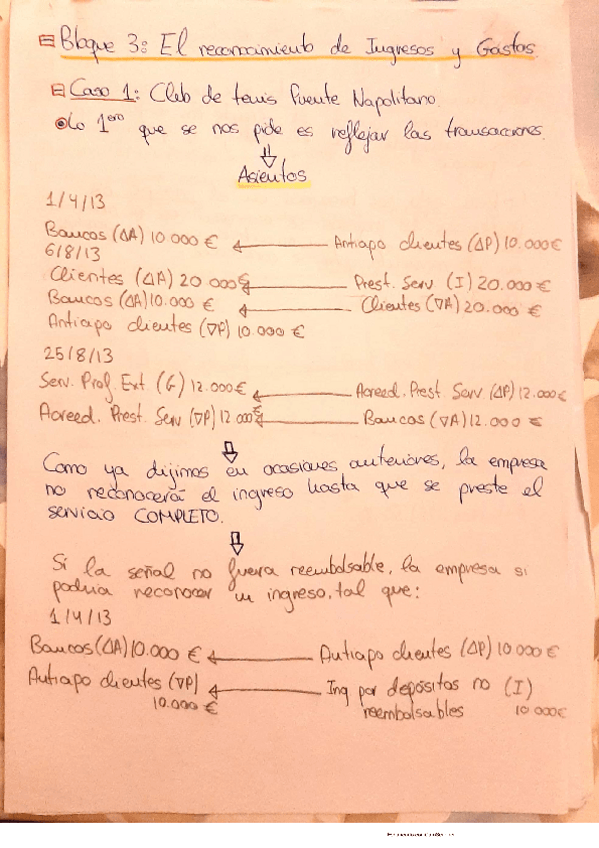 Bloque 3: El reconocimiento de Ingresos y Gastos
Caso 1: Club de tenis Puente Napolitano.
Lo 1ero que se nos pide es reflejar las transacciones.
Asientos
1/4/13
Bancos (ΔA) 10.000 € ← Antiapo clientes (ΔP) 10.000€
6/8/13
Clientes (ΔA) 20.000€ ← Prest. Serv (I) 20.000€
Bancos (ΔA) 10.000 € ← Clientes (∇A) 20.000 €
Antiapo clientes (∇P) 10.000 €
25/8/13
Serv. Prof. Ext (G) 12.000€ ← Acreed. Prest. Serv (ΔP) 12.000€
Acreed. Prest. Serv (∇P) 12.000€ ← Bancos (∇A) 12.000 €
Como ya dijimos en ocasiones anteriores, la empresa
no reconocerá el ingreso hasta que se preste el
servicio COMPLETO.
Si la señal no fuera reembolsable, la empresa si
podria reconocer un ingreso, tal que:
1/4/13
Bancos (ΔA) 10.000 € ← Antiapo clientes (ΔP) 10.000€
Antiapo clientes (∇P) ← Ing por depósitos no (I)
10.000 € reembolsables 10.000€